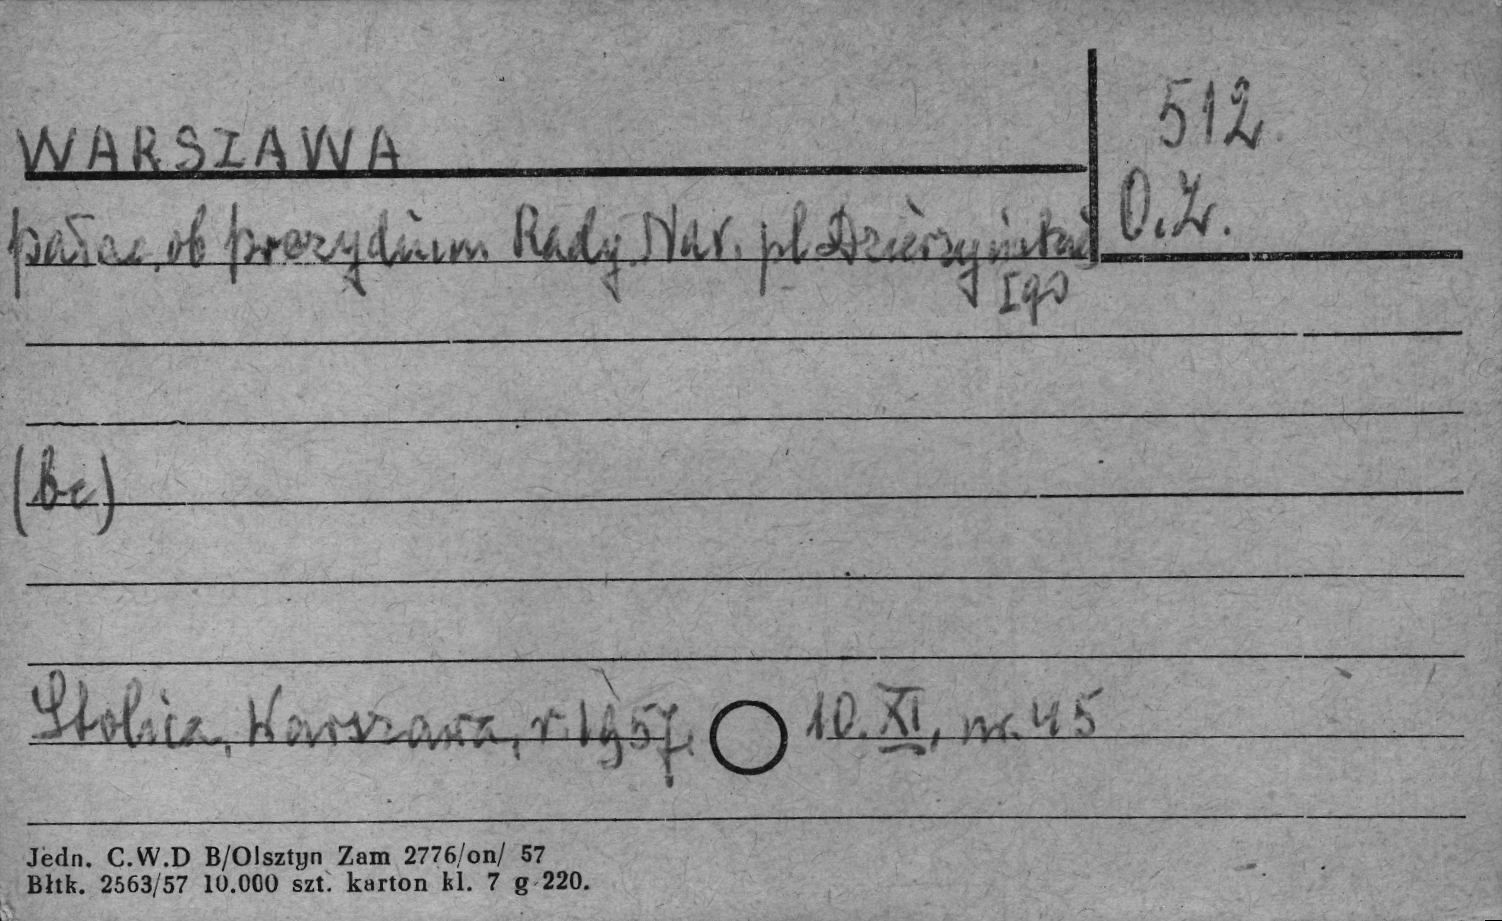 WARSZAWA
512
O.Z.
pałac, ob prezydium Rady Nar. pl Dzierżyńskiego
(bc)
Stolica, Warszawa, r. 1957. 10. XI, nr. 45
Jedn. C.W.D B/Olsztyn Zam 2776/on/ 57
Błtk. 2563/57 10.000 szt. karton kl. 7 g 220.